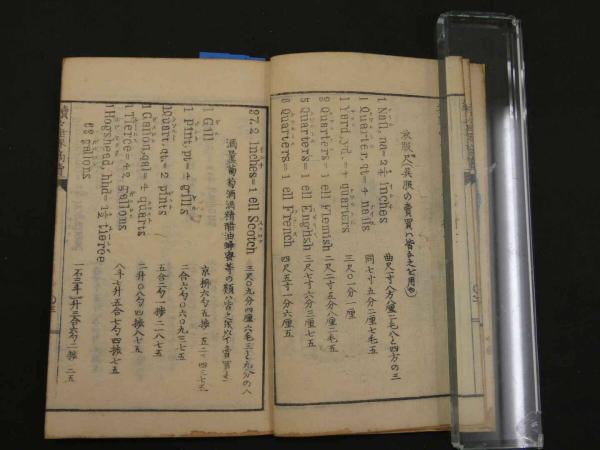 衣服尺（呉服の賣買ハ皆なこれを用ゆ）
1 Nail, na= 2¼ inches
曲尺一寸八分八厘二毛八と四方の三
1 Quarter, qr= 4 nails
同七寸五分二厘七毛五
1 Yard, yd.= 4 quarters
三尺〇一分一厘
3 Quarters= 1 ell Flemish
二尺二寸五分八厘二毛五
5 Quarters= 1 ell English
三尺七寸六分三厘七五
6 Quarters= 1 ell French
四尺五寸一分六厘五
37.2 Inches= 1 ell Scotch
三尺〇九分四厘六毛三と九分の八
1 Gill
京枡六勺五撮
1 Pint, pt= 4 grills
二合六勺〇六〇九三七五
1 Quart, qt.= 2 pints
五合二勺一撮二一八七五
1 Gallon, gal= 4 quarts
二升〇八勺四撮八七五
1 Tierce= 42 gallons
八斗七升五合七勺四撮七五
1 Hogshead, hhd= 1½ tierce
63 gallons
一石三斗一升三合六勺二撮